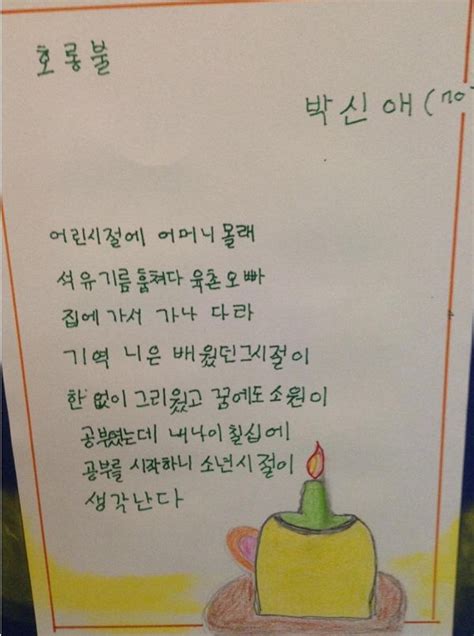 호롱불
박신애(70
어린시절에 어머니몰래
석유기름훔쳐다 육촌오빠
집에가서 가나다라
기역 니은 배웠던그시절이
한없이그리웠고 꿈에도소원이
공부였는데 내나이칠십에
공부를 시작하니 소년시절이
생각난다